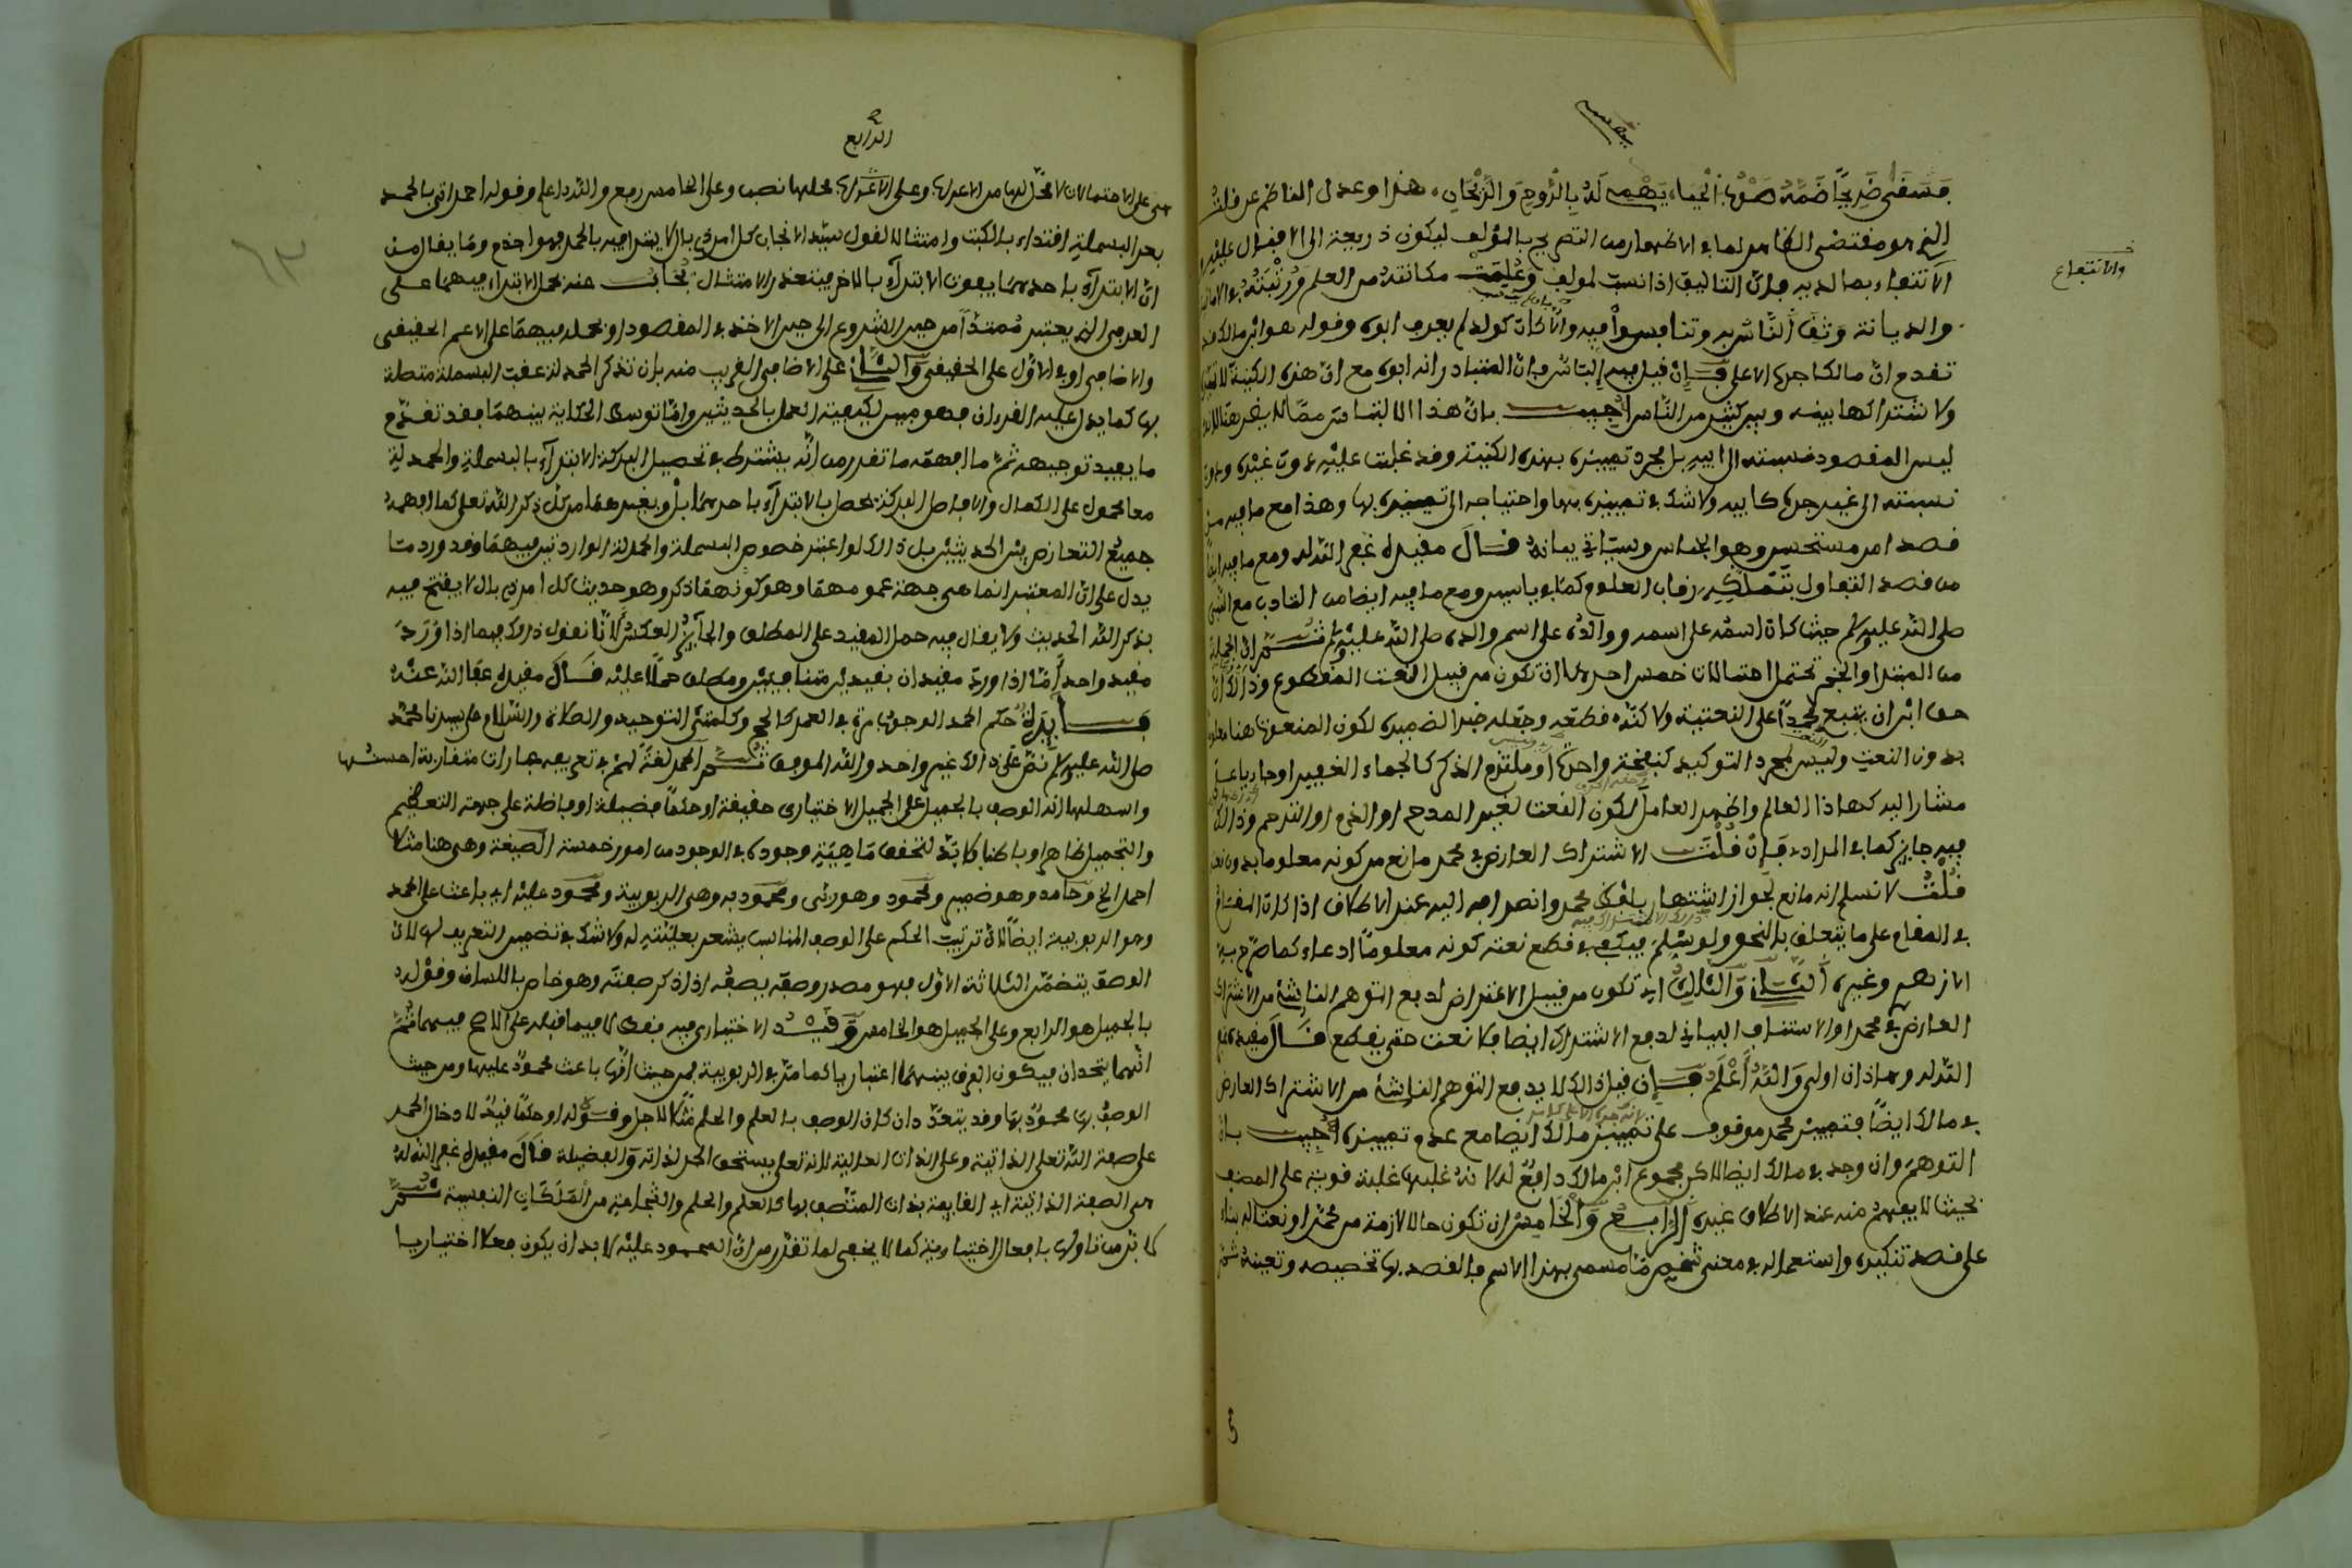 فسقى ضريحا ضمه صوب الحياء يهمي له بالروح والريحان هذا وعدل الناظم عن قلت
الذي هو مقتضى الظاهر لما في الاظهار من التصريح بالمؤلف ليكون ذريعة الى الاقبال عليه و
الانتفاع بما لديه فإن التآليف اذا نسبت لمؤلف وعلمت مكانته من العلم ورتبته في الامانة
والانتفاع
والديانة وثق الناس به وتنافسوا فيه والا كان كولد لم يعرف ابوه وقوله هو ابن مالك قد
تقدم ان مالكا جده الاعلى فإن قيل فيه إلباس فإن المتبادر انه ابوه مع ان هذه الكنية
ولاشتراكها بينه وبين كثير من الناس اجيب بان هذا الالتباس مما لا يضر هنا لانه
ليس المقصود نسبته الى ابيه بل مجرد تمييزه بهذه الكنية وقد غلبت عليه دون غيره
نسبته الى غير جده كابيه ولا شك في تمييزه بها واحتياجه الى تمييزه بها وهذا مع ما فيه من
قصد امر مستحسن وهو الجناس وسيأتي بيانه قال مقيده غفر الله له ومع ما فيه ايضا
من قصد التفاؤل بتملكه رقاب العلوم ومع ما فيه ايضا من التأدب مع النبي
صلى الله عليه وسلم حيث كان اسمه على اسمه ووالده على اسم والده صلى الله عليه وسلم ثم ان الجملة
من المبتدا والخبر تحتمل احتمالات خمس احدها ان تكون من قبيل النعت المقطوع وذلك ان
حق ابن ان يتبع محمدا على النعتية ولاكنه قطعه وجعله خبرا لضميره لكون المنعوت هنا معلوما
بدون النعت وليس لمجرد التوكيد كنفخة واحدة او ملتزم الذكر كالجماء الغفير او جاريا على
مشار اليه كهاذا العالم والعامل لكون النعت لغير المدح او الذم او الترحم وذلك
فيه جايز كما في المرادي فإن قلت الاشتراك العارض في محمد مانع من كونه معلوما بدون نعت
قلت لا نسلم انه مانع لجواز اشتهار بلفظ محمد وانصرافه اليه عند الاطلاق اذا كان المقام
في المقام على ما يتعلق بالنحو ولو سلم فيكفي في قطع نعته كونه معلوما ادعاء كما صرح به
الازهري وغيره الثاني والثالث ان تكون من قبيل الاعتراض لدفع التوهم الناشئ من الاشتراك
العارض في محمد او الاستئناف البياني لدفع الاشتراك ايضا فلا نعت حتى يقطع قال مقيده غفر
الله له وهاذان اولى والله أعلم فإن قيل ذلك لا يدفع التوهم الناشئ من الاشتراك العارض
في مالك ايضا فتمييز محمد موقوف على تمييز مالك ايضا مع عدم تمييزه اجيب بان
التوهم وان وجد في مالك ايضا لاكن مجموع ابن مالك دافع له لانه غلب عليه غلبة قوية على المصنف
بحيث لا يفهم منه عند الاطلاق غيره الرابع والخامس ان تكون حالا لازمة من محمد او نعتا له بناء
على قصد تنكيره واستعماله في معنى شخص ما مسمى بهذا الاسم فالقصد بها تخصيصه وتعيينه ثم
الرابع
هي على الاحتمالات لا محل لها من الاعراب وعلى الرابع محلها نصب وعلى الخامس رفع والله اعلم وقوله احمد اتى بالحمد
بعد البسملة اقتداء بالكتب وامتثالا لقول سيد الانجاب كل امر ذي بال لا يبتدا فيه بالحمد فهو اجذم وما يقال من
ان الابتداء باحدهما يفوت الابتداء بالاخر فيتعذر الامتثال يجاب عنه بحمل الابتداء فيهما على
العرفي الذي يعتبر ممتدا من حين الشروع الى حين الاخذ في المقصود او بحمله فيهما على الاعم الحقيقي
والاضافي او في الاول على الحقيقي والثاني على الاضافي القريب منه بان تذكر الحمد له عقب البسملة متصلة
بها كما يدل عليه القرءان فهو مبين لكيفية العمل بالحديثين وانما توسط الحكاية بينهما فقد تقدم
ما يفيد توجيهه ثم ما افهمه ما تقدر من انه يشترط في تحصيل البركة الابتداء بالبسملة والحمد لة
معا محمول على الكمال والا فاصل البركة يحصل بالابتداء باحدهما بل وبغيرهما من كل ذكر الله تعلى كما افهمه
جميع التعارض بين الحديثين بل ذلك لو اعتبر خصوص البسملة والحمدلة الواردتين فيهما وقد ورد ما
يدل على ان المعتبر انما هي جهة عمومهما وهو كونهما ذكرا وهو حديث كل امر ذي بال لا يفتتح فيه
بذكر الله الحديث ولا يقال فيه حمل المقيد على المطلق والجاري العكس لانا نقول ذلك فيما اذا ورد
مقيد واحد أما اذا ورد مقيدان بقيدين متنافيين ومطلق حملا عليه قال مقيده عفا الله عنه
فايدة حكم الحمد الوجوب مرة في العمر كالحج وكلمتي التوحيد والصلاة والسلام على سيدنا محمد
صلى الله عليه وسلم نص على ذلك غير واحد والله الموفق ثم الحمد لغة لهم في تعريفه عبارات متقاربة احسنها
واسهلها انه الوصف بالجميل على الجميل الاختياري حقيقة او حكما فضيلة او فاضلة على جهة التعظيم
والتبجيل ظاهرا وباطنا ولا بد لتحقق ماهيته وجوده في الوجود من امور خمسة الصيغة وهي هنا مثلا
احمد الخ وحامد وهو ضميره ومحمود وهو ربي ومحمود به وهي الربوبية ومحمود عليه اي باعث على الحمد
وهو الربوبية ايضا لان ترتيب الحكم على الوصف المناسب يشعر بعليته له ولا شك في تضمن التعريف لها لان
الوصف يتضمن الثلاثة الاول فهو مصدر وصفه يصفه اذا ذكر صفته وهو خاص باللسان وقوله
بالجميل هو الرابع وعلى الجميل هو الخامس وقيد الاختياري فيه فقط لا فيما قبله على الاصح فيهما ثم
انهما يتحدان فيكون الفرق بينهما اعتباريا كما مر في الربوبية فمن حيث انها باعث محمود عليها ومن حيث
الوصف بها محمود بها وقد يتعددان كان الوصف بالعلم والحلم مثلا لاجل وقوله او حكما قيد لادخال الحمد
على صفة الله تعلى الذاتية وعلى الذات العالية لانه تعلى يستحق الحمد لذاته والفضيلة قال مقيده غفر الله له
هي الصفة الذاتية اي القايمة بذات المتصف بها كالعلم والحلم والشجاعة من الملكات النفسية ثم
لا بد من تاولها بافعال اختيارية كما لا يخفى لما تقرر من ان المحمود عليه لا بد ان يكون فعلا اختياريا